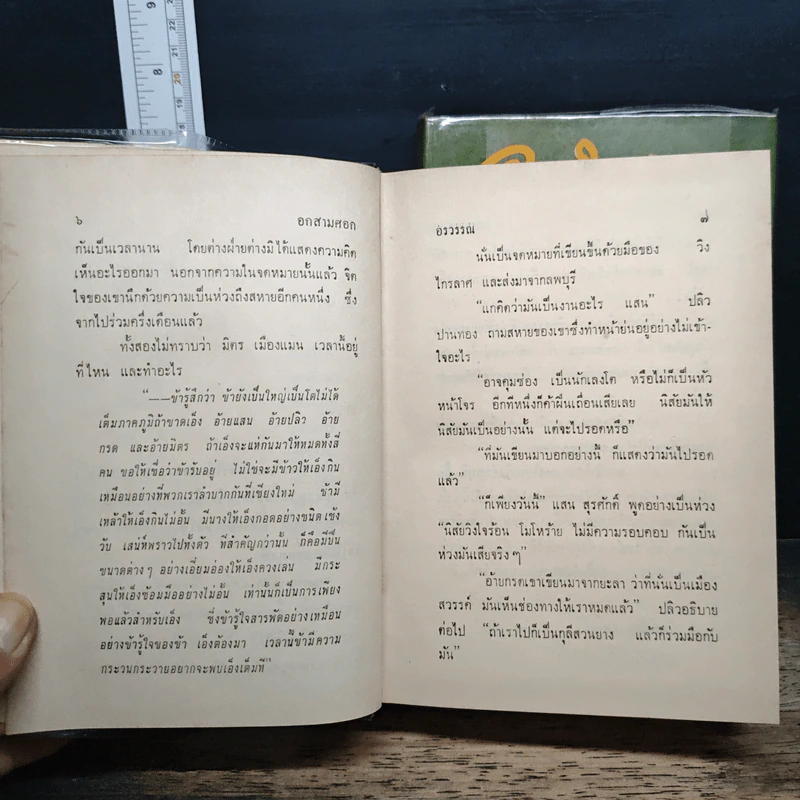 ๖ อกสามศอก
กันเป็นเวลานาน โดยต่างฝ่ายต่างมิได้แสดงความคิด
เห็นอะไรออกมา นอกจากความในจดหมายนั้นแล้ว จิต
ใจของเขานึกด้วยความเป็นห่วงถึงสหายอีกคนหนึ่ง ซึ่ง
จากไปร่วมครึ่งเดือนแล้ว
ทั้งสองไม่ทราบว่า มิตร เมืองแมน เวลานี้อยู่
ที่ไหน และทำอะไร
“——ข้ารู้สึกว่า ข้ายังเป็นใหญ่เป็นโตไม่ได้
เต็มภาคภูมิถ้าขาดเอ็ง อ้ายแสน อ้ายปลิว อ้าย
กรด และอ้ายมิตร ถ้าเอ็งจะแห่กันมาให้หมดทั้งสี่
คน ขอให้เชื่อว่าข้ารับอยู่ ไม่ใช่จะมีข้าวให้เอ็งกิน
เหมือนอย่างที่พวกเราลำบากกันที่เชียงใหม่ ข้ามี
เหล้าให้เอ็งกินไม่อั้น มีนางให้เอ็งกอดอย่างชนิดเช้ง
วับ เสน่ห์พราวไปทั้งตัว ที่สำคัญกว่านั้น ก็คือมีปืน
ขนาดต่าง ๆ อย่างเอี่ยมอ่องให้เอ็งควงเล่น มีกระ
สุนให้เอ็งซ้อมมืออย่างไม่อั้น เท่านั้นก็เป็นการเพียง
พอแล้วสำหรับเอ็ง ซึ่งข้ารู้ใจสารพัดอย่างเหมือน
อย่างข้ารู้ใจของข้า เอ็งต้องมา เวลานี้ข้ามีความ
กระวนกระวายอยากจะพบเอ็งเต็มที”
อรวรรณ ๗
นั่นเป็นจดหมายที่เขียนขึ้นด้วยมือของ วิง
ไกรลาศ และส่งมาจากลพบุรี
“แกคิดว่ามันเป็นงานอะไร แสน” ปลิว
ปานทอง ถามสหายของเขาซึ่งทำหน้าย่นอยู่อย่างไม่เข้า-
ใจอะไร
“อาจคุมซ่อง เป็นนักเลงโต หรือไม่ก็เป็นหัว
หน้าโจร อีกทีหนึ่งก็ค้าฝิ่นเถื่อนเสียเลย นิสัยมันให้
นิสัยมันเป็นอย่างนั้น แต่จะไปรอดหรือ”
“ที่มันเขียนมาบอกอย่างนี้ ก็แสดงว่ามันไปรอด
แล้ว”
“ก็เพียงวันนี้” แสน สุรศักดิ์ พูดอย่างเป็นห่วง
“นิสัยวิงใจร้อน โมโหร้าย ไม่มีความรอบคอบ กันเป็น
ห่วงมันเสียจริง ๆ”
“อ้ายกรดเขาเขียนมาจากยะลา ว่าที่นั่นเป็นเมือง
สวรรค์ มันเห็นช่องทางให้เราหมดแล้ว” ปลิวอธิบาย
ต่อไป “ถ้าเราไปก็เป็นกุลีสวนยาง แล้วก็ร่วมมือกับ
มัน”